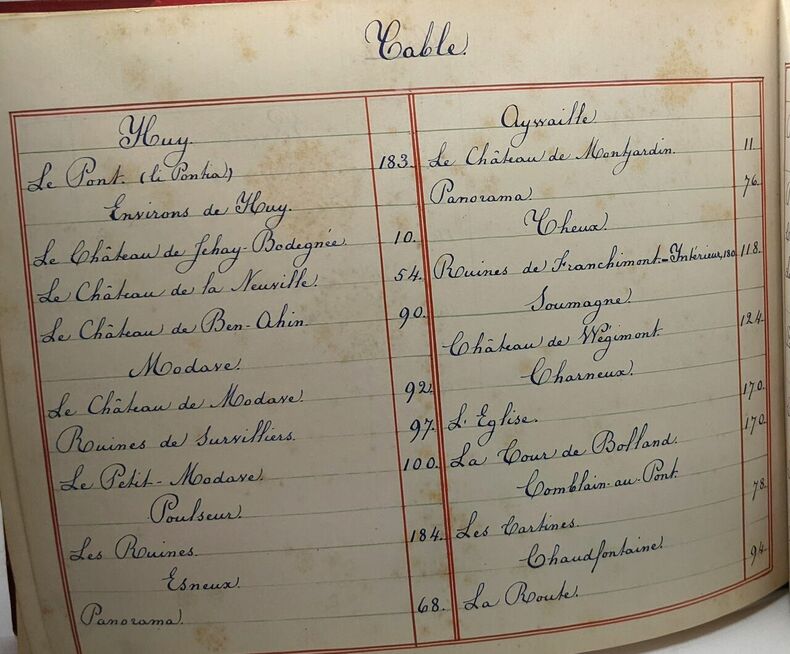 Table.
Huy.
Le Pont. (li Pontia) 183.
Environs de Huy.
Le Château de Jehay-Bodegnée 10.
Le Château de la Neuville. 54.
Le Château de Ben-Ahin. 90.
Modave.
Le Château de Modave. 92.
Ruines de Survilliers. 97.
Le Petit-Modave. 100.
Poulseur.
Les Ruines. 184.
Esneux.
Panorama. 68.
Aywaille
Le Château de Montjardin. 11.
Panorama. 76.
Theux.
Ruines de Franchimont.-Intérieur, 180. 118.
Soumagne.
Château de Wégimont. 124.
Charneux.
L'Eglise. 170.
La Tour de Bolland. 170.
Comblain-au-Pont.
Les Tartines. 78.
Chaudfontaine.
La Route. 94.